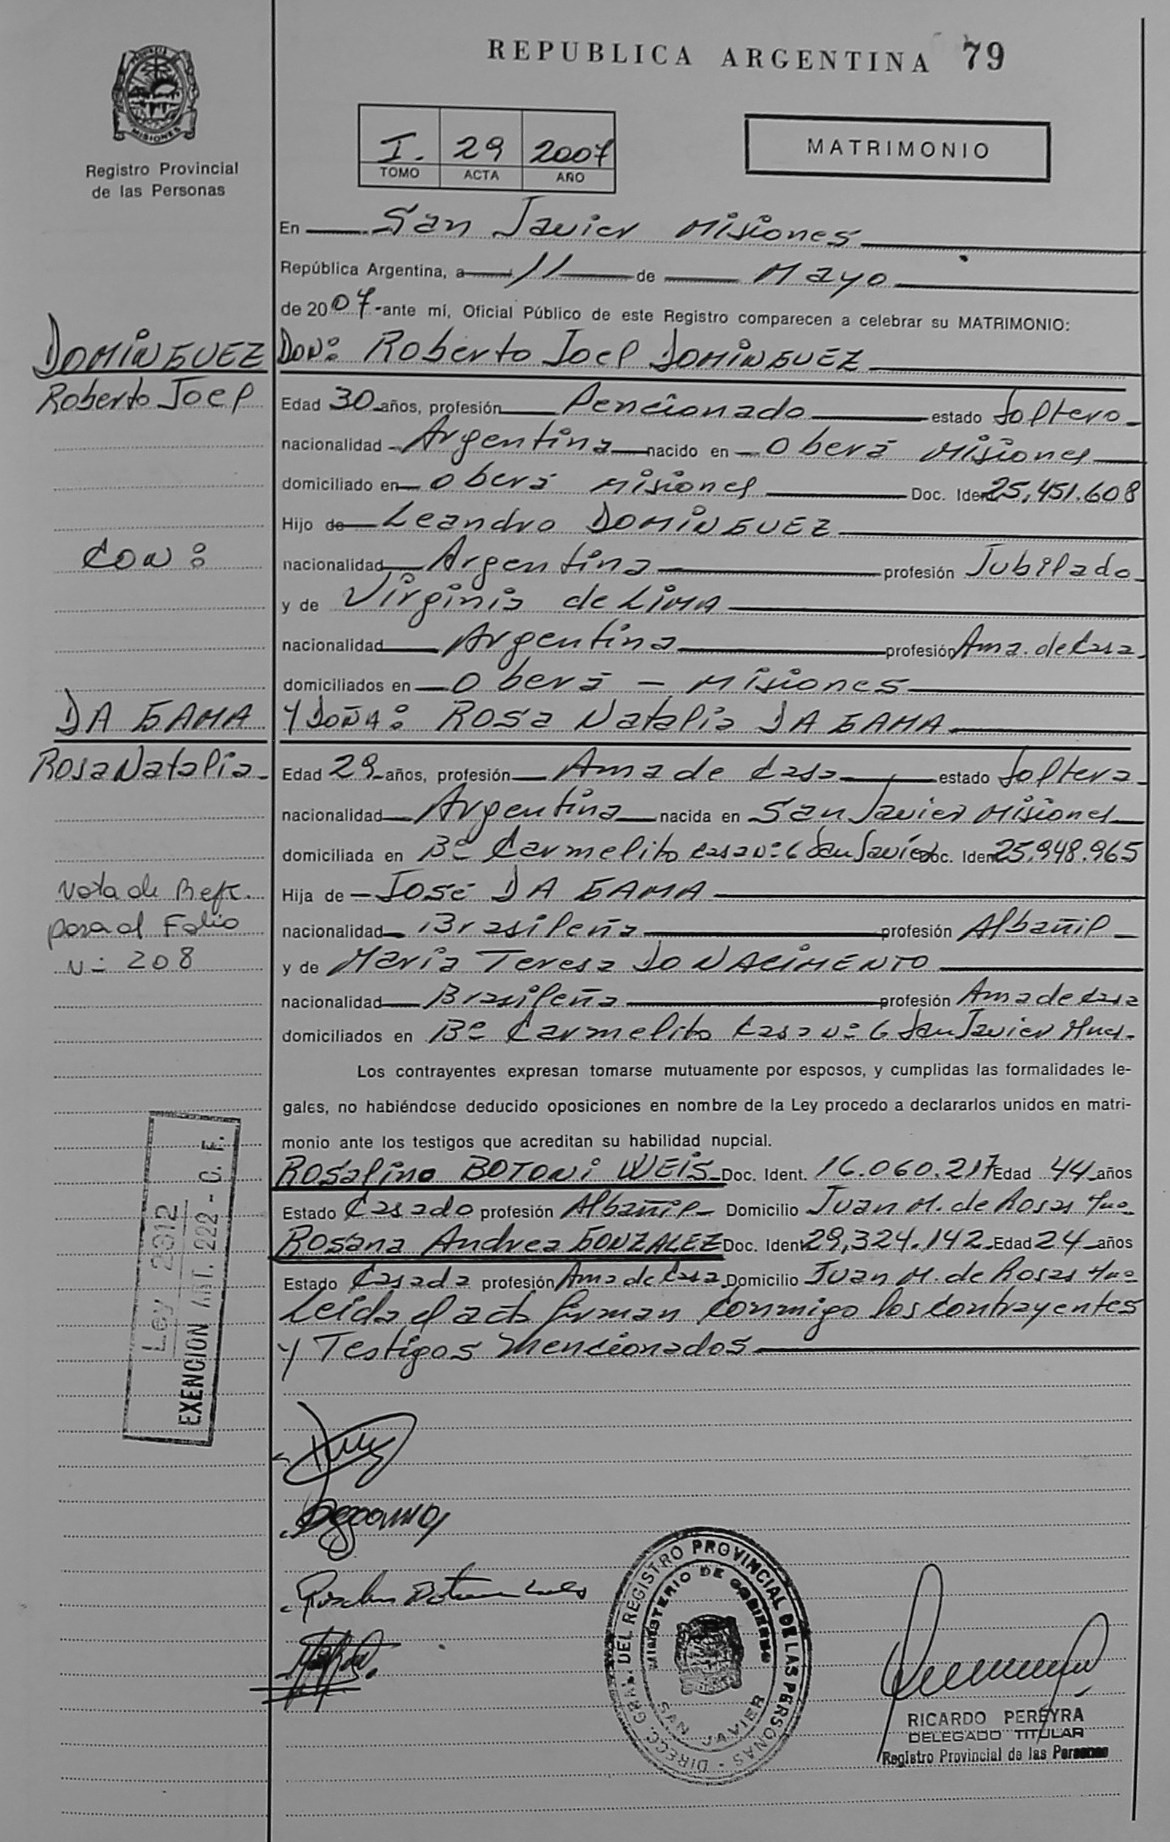 REPUBLICA ARGENTINA 79
MISIONES
Registro Provincial
de las Personas
I. 29 2007
TOMO ACTA AÑO
MATRIMONIO
En San Javier Misiones
República Argentina, a 11 de Mayo
de 2007 -ante mí, Oficial Público de este Registro comparecen a celebrar su MATRIMONIO:
DOMINGUEZ
Roberto Joel
DON: Roberto Joel DOMINGUEZ
Edad 30 años, profesión Pencionado estado Soltero
nacionalidad Argentina nacido en Oberá Misiones
domiciliado en Oberá Misiones Doc. Iden 25,451.608
Hijo de Leandro DOMINGUEZ
CON:
nacionalidad Argentina profesión Jubilado
y de Virginia de LIMA
nacionalidad Argentina profesión Ama de Casa
domiciliados en Oberá - Misiones
DA GAMA
Rosa Natalia
Y DOÑA: Rosa Natalia DA GAMA
Edad 29 años, profesión Ama de Casa estado Soltera
nacionalidad Argentina nacida en San Javier Misiones
domiciliada en Bº Carmelito Casa Nº 6 San Javier Doc. Iden 25,948.965
Nota de Refe.
pasa al Folio
Nº 208
Hija de José DA GAMA
nacionalidad Brasileña profesión Albañil
y de María Teresa DO NACIMENTO
nacionalidad Brasileña profesión Ama de Casa
domiciliados en Bº Carmelito Casa Nº 6 San Javier Mnes.
Los contrayentes expresan tomarse mutuamente por esposos, y cumplidas las formalidades le-
gales, no habiéndose deducido oposiciones en nombre de la Ley procedo a declararlos unidos en matri-
monio ante los testigos que acreditan su habilidad nupcial.
Ley 2312
EXENCION ART. 222 - C. F.
Rosalino BOTONI WEIS Doc. Ident. 16.060.217 Edad 44 años
Estado Casado profesión Albañil Domicilio Juan M. de Rosas
Rosana Andrea GONZALEZ Doc. Ident 29,324.142 Edad 24 años
Estado Casada profesión Ama de Casa Domicilio Juan M. de Rosas
Leida el acta firman conmigo los contrayentes
y Testigos mencionados
DIRECC. GRAL. DEL REGISTRO PROVINCIAL DE LAS PERSONAS
MINISTERIO DE GOBIERNO
SAN JAVIER
RICARDO PEREYRA
DELEGADO TITULAR
Registro Provincial de las Personas